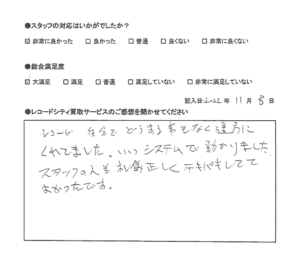 ●スタッフの対応はいかがでしたか?
☑ 非常に良かった □ 良かった □ 普通 □ 良くない □ 非常に良くない
●総合満足度
☑ 大満足 □ 満足 □ 普通 □ 満足していない □ 非常に満足していない
記入日 年 11 月 日
●レコードシティ買取サービスのご感想を聞かせてください
レコード 自分で どうする事もなく途方に
くれてました。いいシステムで助かりました
スタッフの人も礼儀正しくテキパキしてて
よかったです。